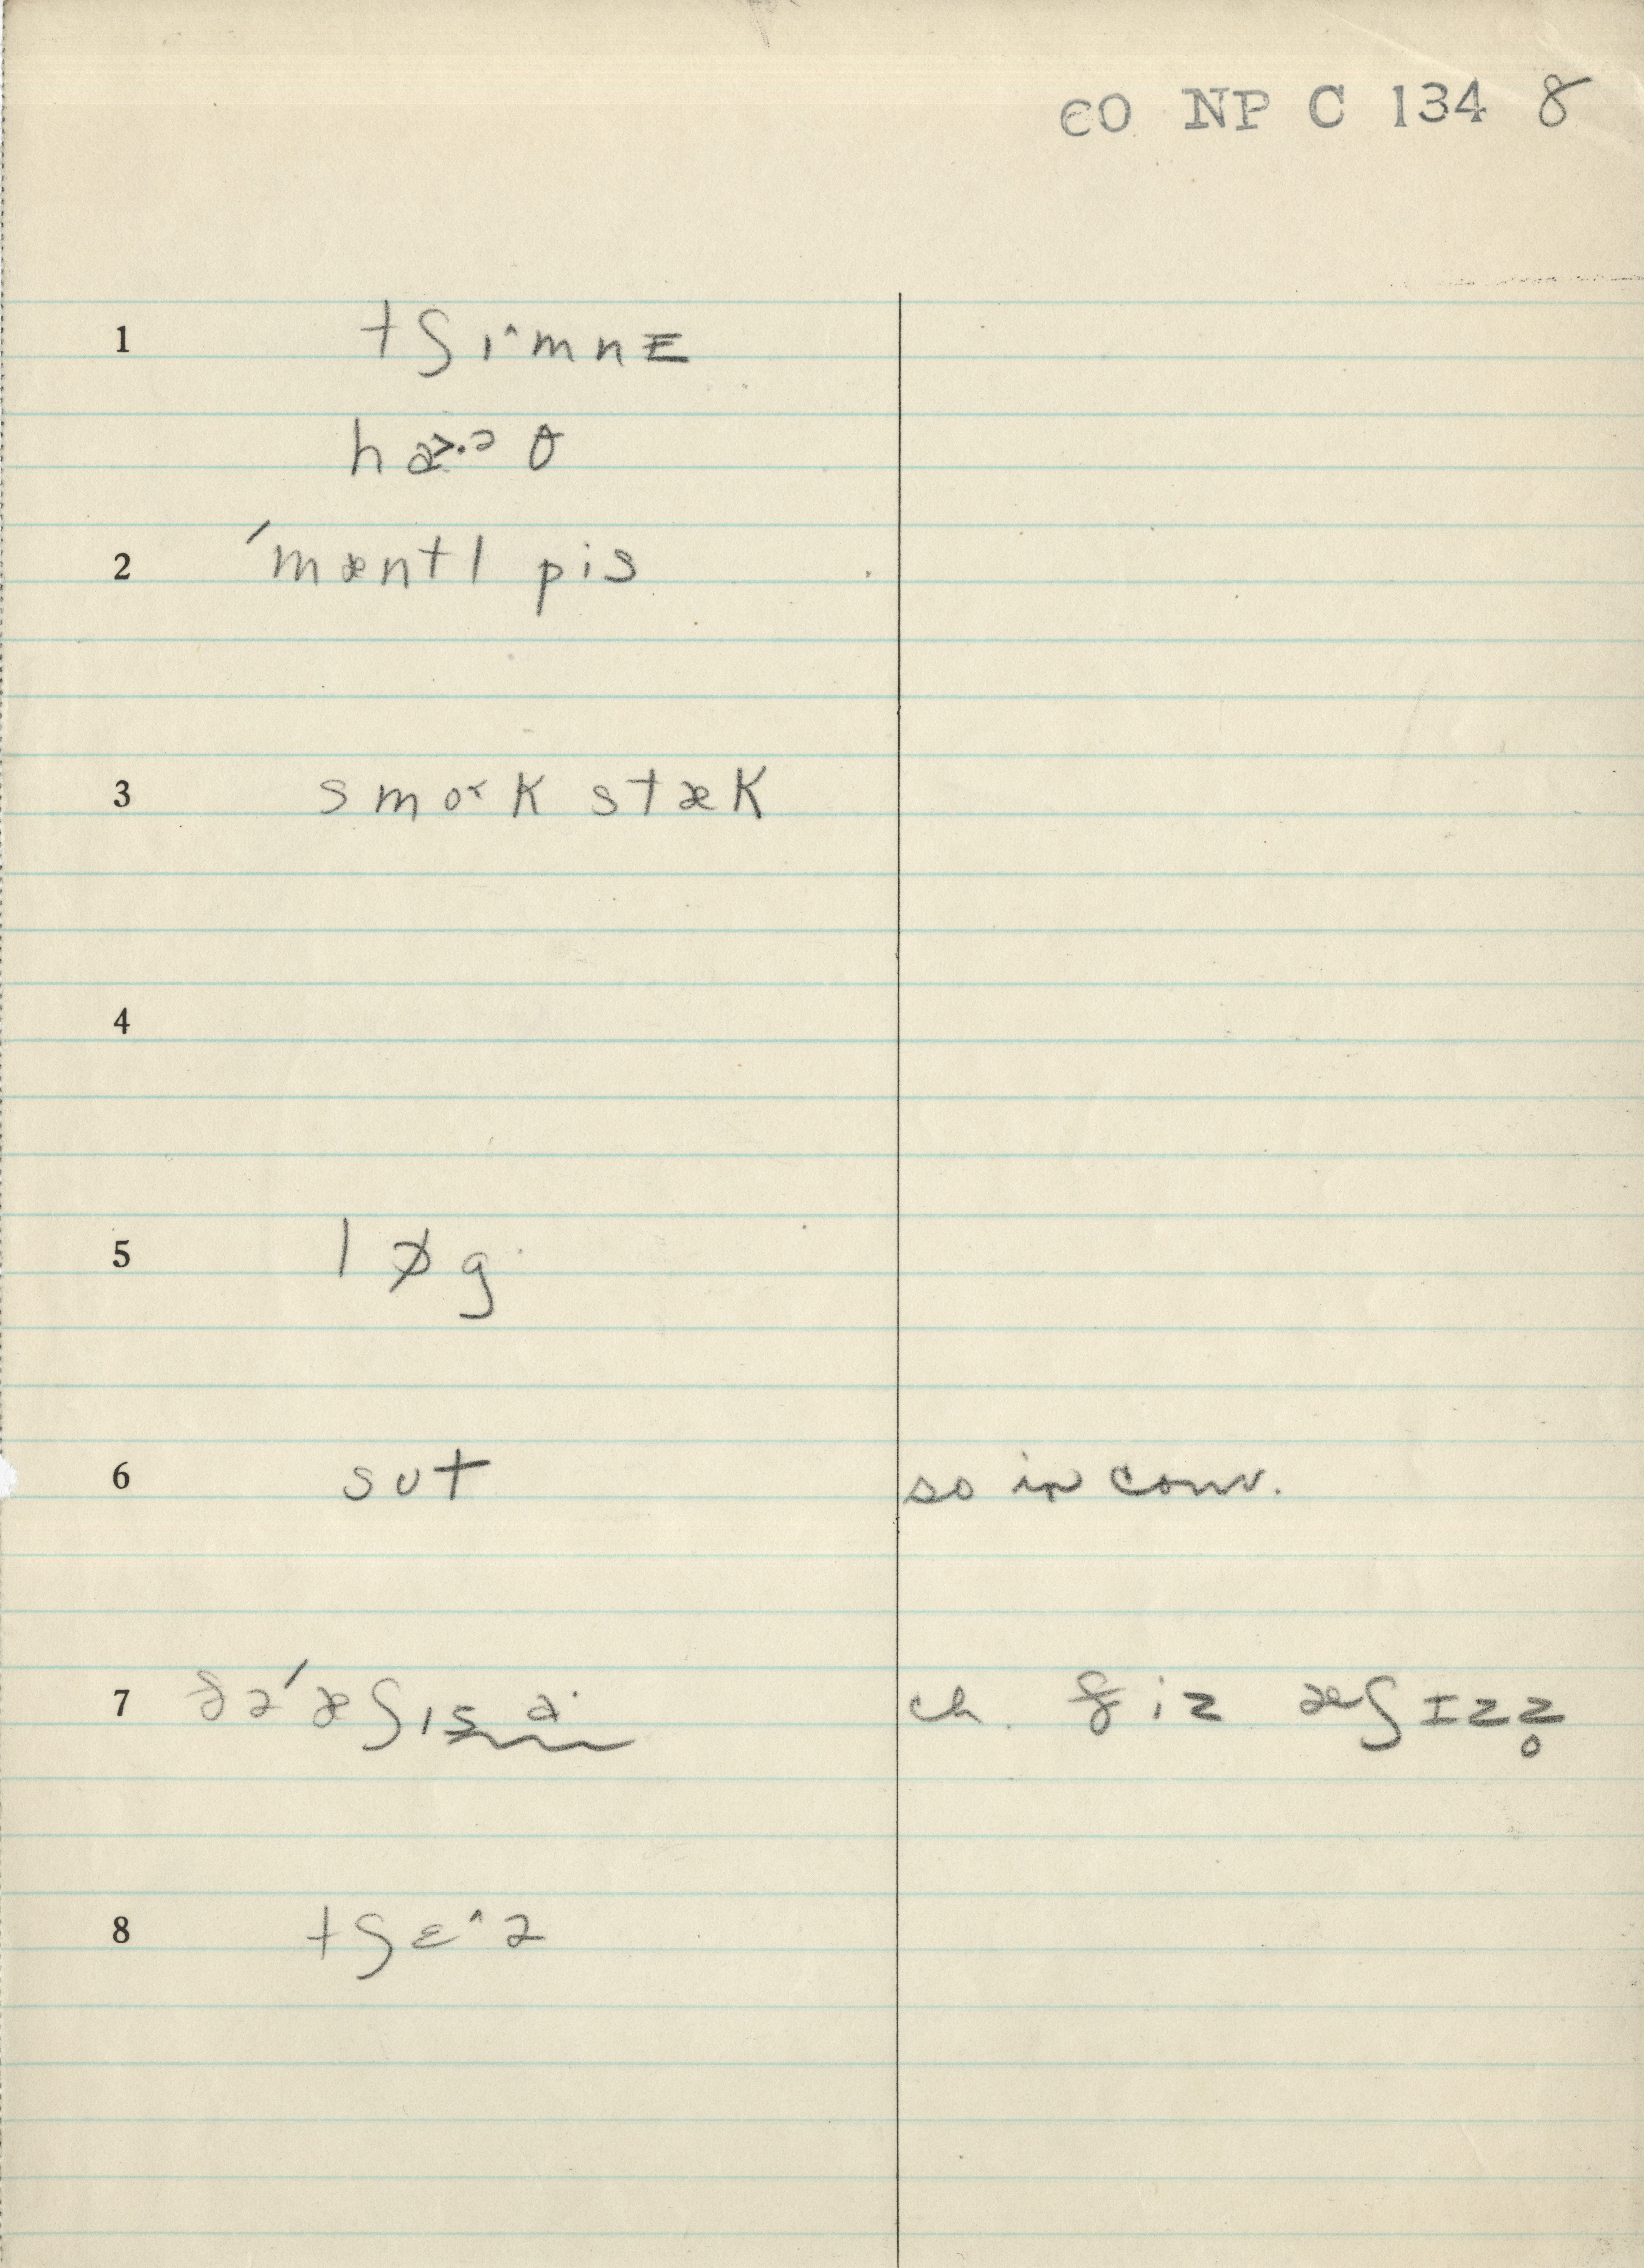 CO NP C 134 8
1 tʃɪ^mnɪ
hɑ>·ᵊ θ
2 ˈmæntl pis
3 smoʳk stæk
4
5 lɒ̸g
6 sʊt so in conv.
7 ðəˈæʃɪs ch. ðiz æʃɪzz̥
8 tʃɛ^ə